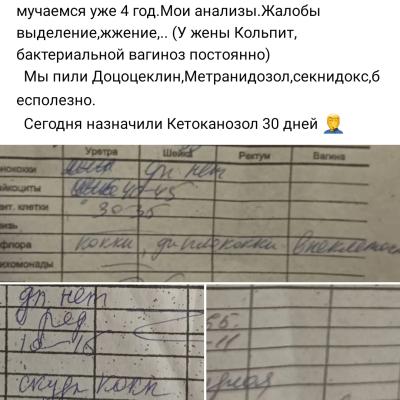 мучаемся уже 4 год.Мои анализы.Жалобы
выделение,жжение,.. (У жены Кольпит,
бактериальной вагиноз постоянно)
Мы пили Доцоцеклин,Метранидозол,секнидокс,б
есполезно.
Сегодня назначили Кетоканозол 30 дней 🤦‍♂️
Уретра Шейка Ректум Вагина
нококки гн нет
йкоциты 40-45
ит. клетки 30-35
изь
флора кокки, диплококки внеклеточ
ихомонады
гн нет
ед
скудн кокк